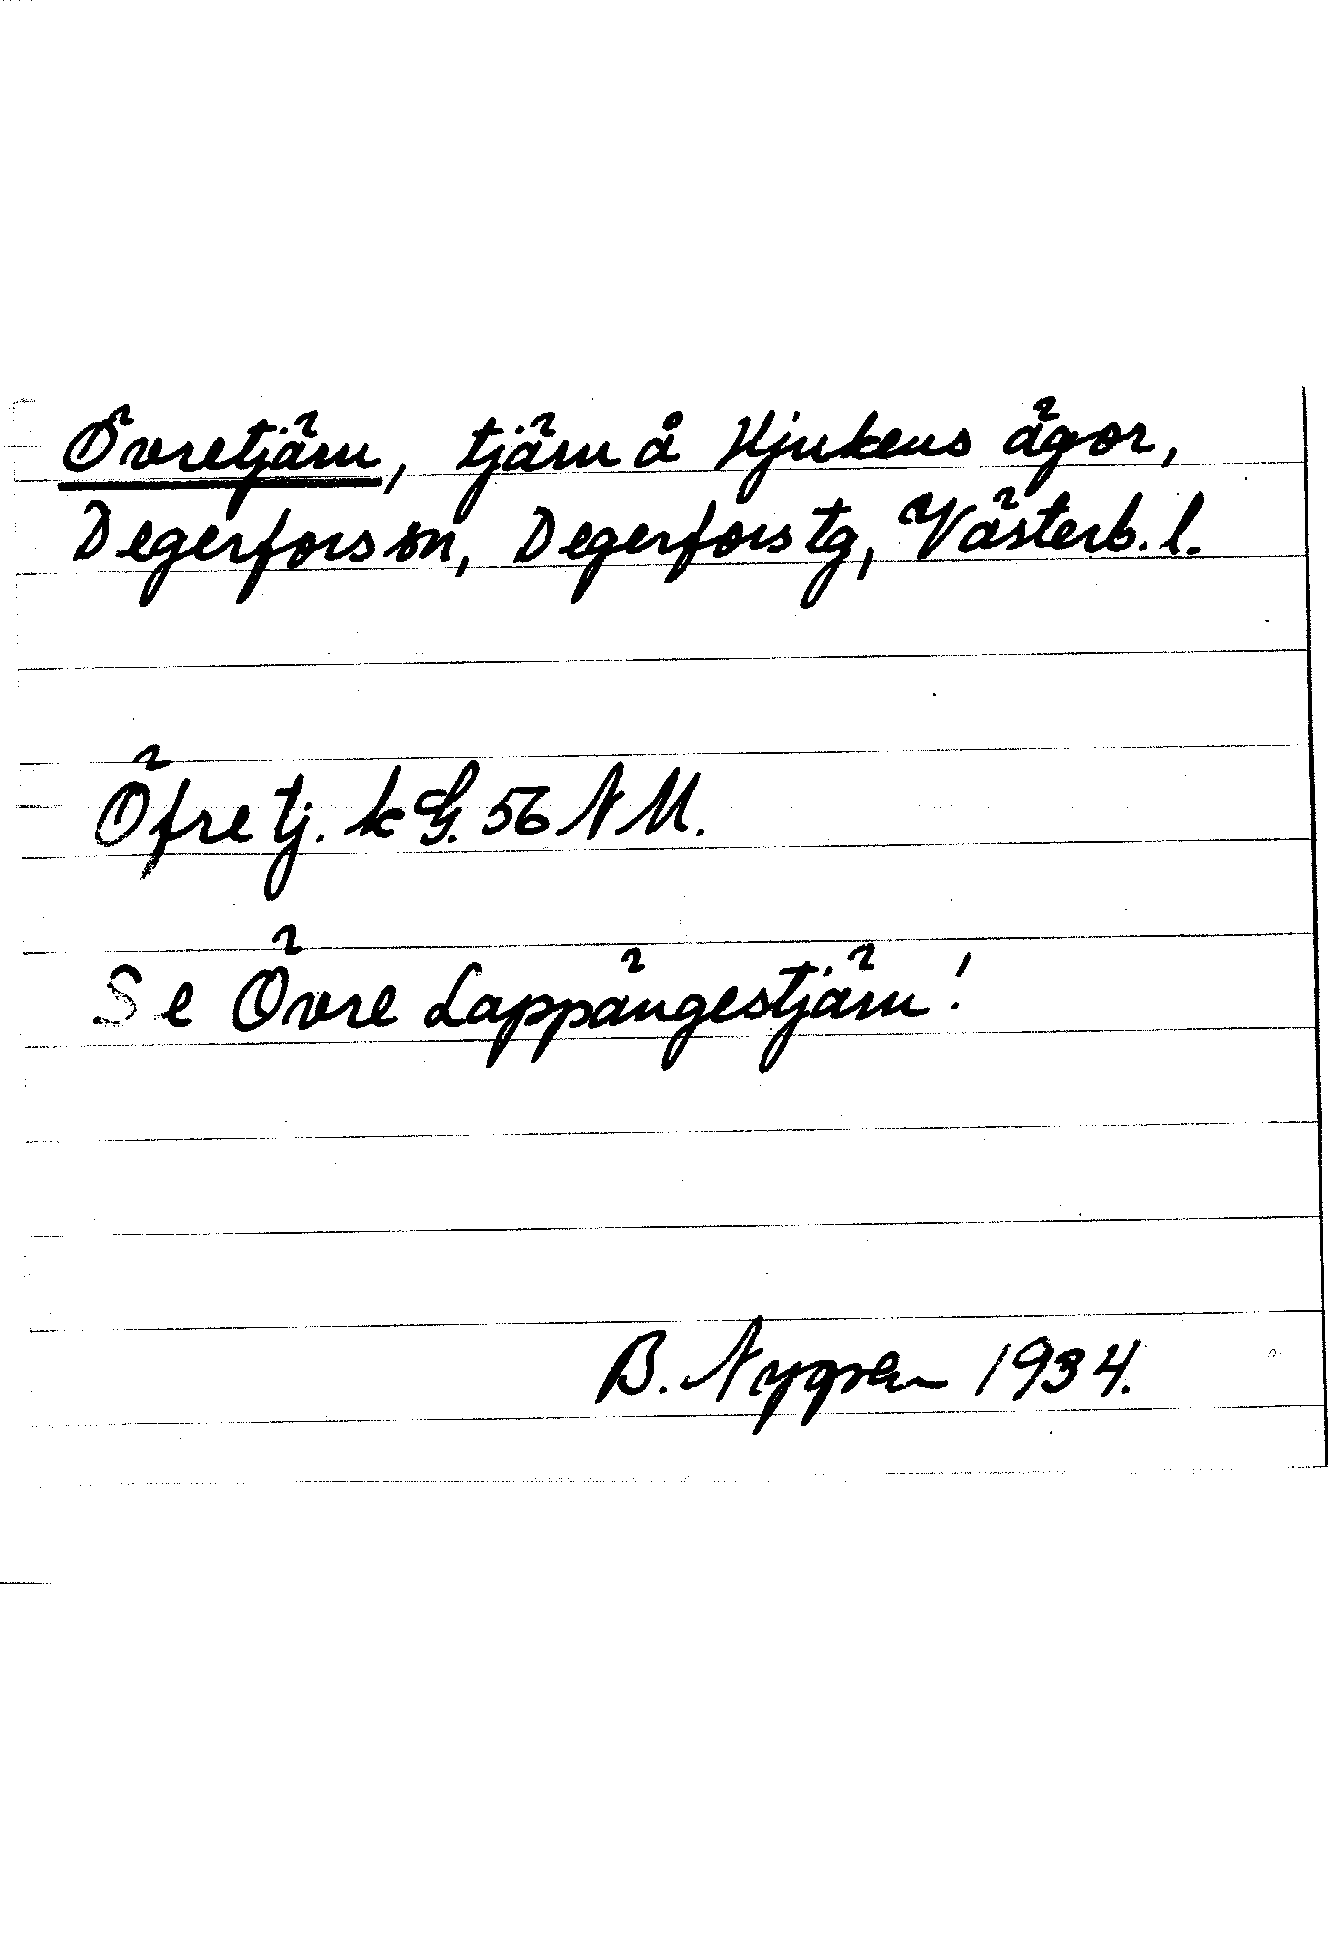 Övretjärn, tjärn å Hjukens ägor,
Degerfors sn, Degerfors tg, Västerb. l.
Öfre tj. k G. 56 NM.
Se Övre Lappängestjärn!
B. Nygren 1934.